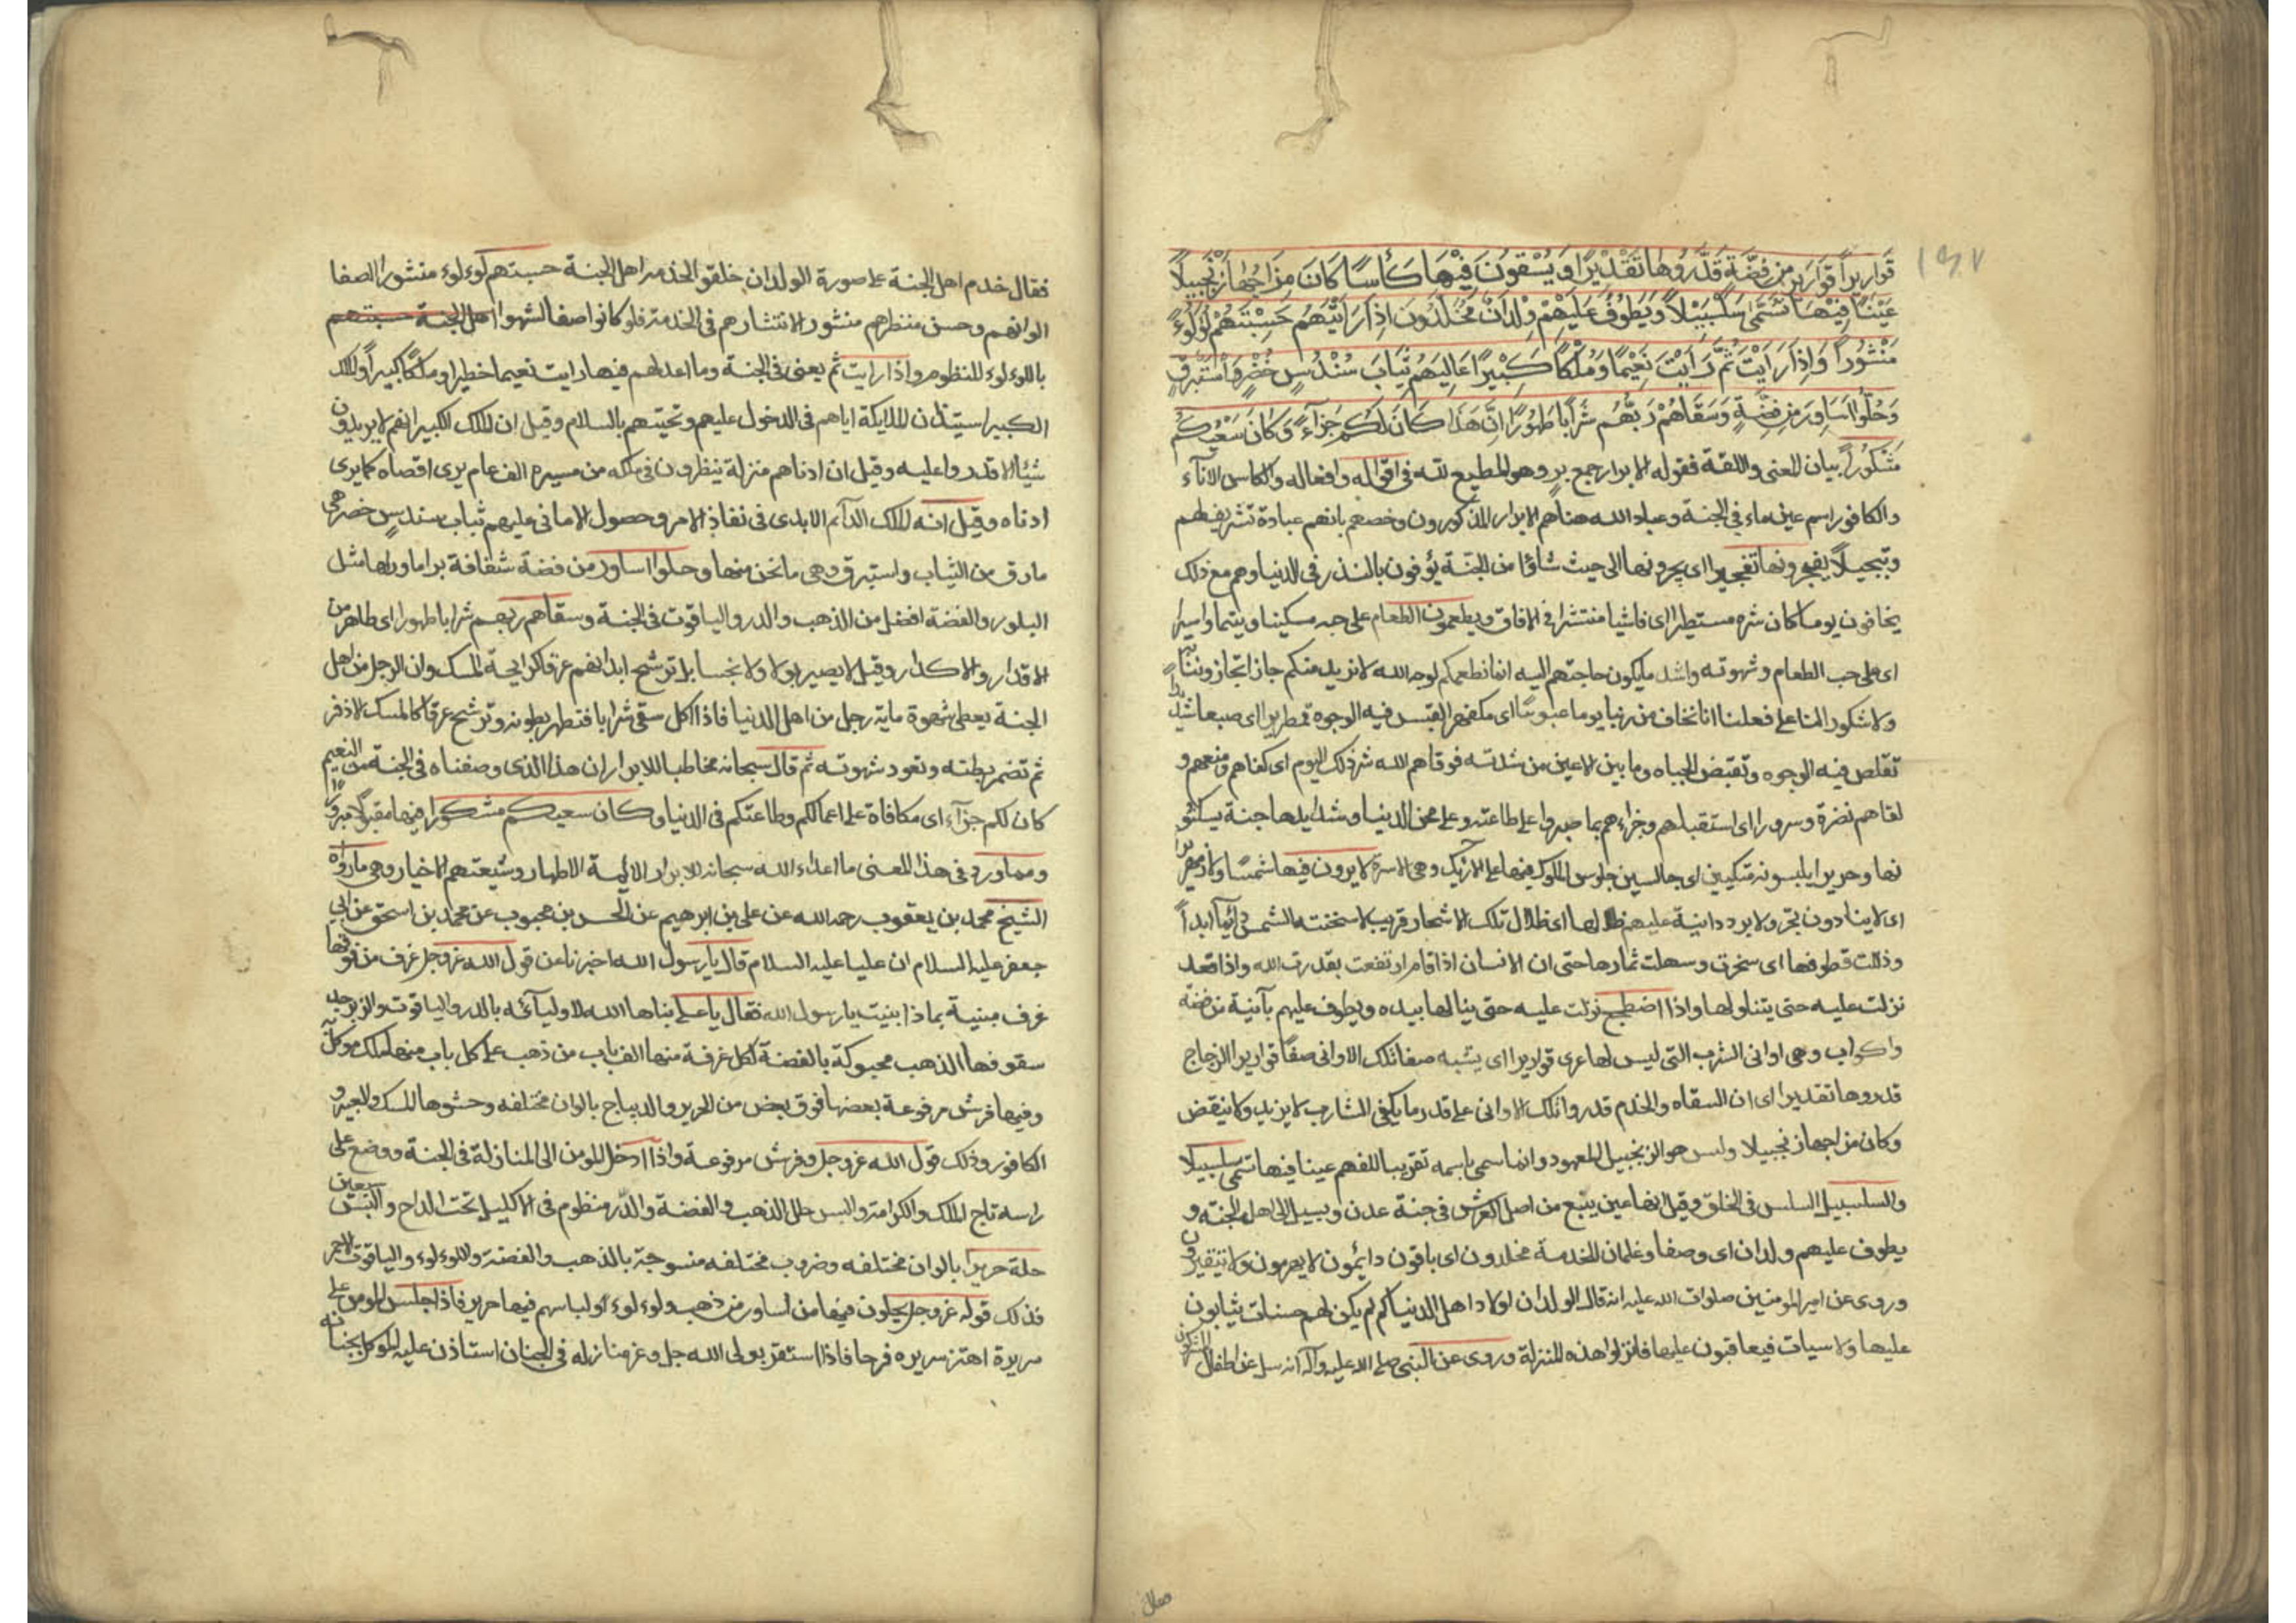 ١٩٧
قَوَارِيراً قَوَارِيرَ مِنْ فِضَّةٍ قَدَّرُوهَا تَقْدِيْرًا وَيُسْقَوْنَ فِيْهَا كَأْسًا كَانَ مِزَاجُهَا زَنْجَبِيلًا
عَيْنًا فِيْهَا تُسَمَّى سَلْسَبِيْلاً وَيَطُوْفُ عَلَيْهِمْ وِلْدَانٌ مُخَلَّدُوْنَ اِذَا رَاَيْتَهُمْ حَسِبْتَهُمْ لُؤْلُؤًا
مَنْثُوراً وَاِذَا رَاَيْتَ ثَمَّ رَاَيْتَ نَعِيْمًا وَمُلْكًا كَبِيْرًا عَالِيَهُمْ ثِيَابُ سُنْدُسٍ خُضْرٌ وَاِسْتَبْرَقٌ
وَحُلُّوا اَسَاوِرَ مِنْ فِضَّةٍ وَسَقَاهُمْ رَبُّهُمْ شَرَابًا طَهُوْرًا اِنَّ هَذَا كَانَ لَكُمْ جَزَآءً وَكَانَ سَعْيُكُمْ
مَشْكُوْرًا بيان المعنى واللغة فقوله الابرار جمع بر وهو المطيع لله في اقواله وافعاله والكاس الانآء
والكافور اسم عين ماء في الجنة وعباد الله هنا هم الابرار المذكورون وخصهم بانهم عباده تشريفا لهم
وتبجيلاً يفجرونها تفجيرا اى يجرونها الى حيث شاؤا من الجنة يوفون بالنذر في الدنيا وهم مع ذلك
يخافون يوما كان شره مستطيرا اى فاشيا منتشرا في الافاق ويطعمون الطعام على حبه مسكينا ويتيما واسيرا
اى على حب الطعام وشهوته واشد مايكون حاجتهم اليه انما نطعمكم لوجه الله لا نريد منكم جزاء
ولا شكورا لنا على فعلنا انا نخاف من ربنا يوما عبوسًا اى مكفهرا تعبس فيه الوجوه قمطريرا اى صعبا شديدا
تقلص فيه الوجوه وتقبض الجباه وما بين الاعين من شدته فوقاهم الله شر ذلك اليوم اى كفاهم ومنعهم و
لقاهم نضرة وسرورا اى استقبلهم وجزاءهم بما صبروا على طاعته وعلى محن الدنيا وشدايدها جنة يسكنو
نها وحريرا يلبسونه متكيين اى جالسين جلوس الملوك فيها على الارايك وهى الاسرة لا يرون فيها شمسًا ولا زمهريرا
اى لا يتاذون بحر ولا برد ودانية عليهم ظلالها اى ظلال تلك الاشجار قريب لا تنسخه الشمس دائماً ابداً
وذللت قطوفها اى سخرت وسهلت ثمارها حتى ان الانسان اذا قام ارتفعت بقدرت الله واذا قعد
نزلت عليه حتى يتناولها واذا اضطجع نزلت عليه حتى ينالها بيده ويطوف عليهم بآنية من فضة
واكواب وهى اوانى الشرب التى ليس لها عرى قواريرا اى يشبه صفا تلك الاوانى صفا قوارير الزجاج
قدروها تقديرا اى ان السقاه والخدم قدروا تلك الاوانى على قدر ما يكفى الشارب لا يزيد ولا ينقص
وكان مزاجها زنجبيلا وليس هو الزنجبيل المعهود وانما سمى باسمه تقريبا للفهم عينا فيها تسمى سلسبيلا
والسلسبيل السلس فى الحلق وقيل انها عين ينبع من اصل العرش فى جنة عدن ويسيل الى اهل الجنة و
يطوف عليهم ولدان اى وصفا وغلمان للخدمة مخلدون اى باقون دائمون لا يهرمون ولا يتغيرون
وروى عن امير المومنين صلوات الله عليه انه قال الولدان اولاد اهل الدنيا كم لم يكن لهم حسنات يثابون
عليها ولا سيات فيعاقبون عليها فانزلوا هذه المنزلة وروى عن النبى صلى الله عليه وآله انه سل عن اطفال المشركين
فقال
فقال خدم اهل الجنة على صورة الولدان خلقوا لخدمة اهل الجنة حسبتهم لوءلوء منثورا لصفا
الوانهم وحسن منظرهم منثورا لانتشارهم فى الخدمة فلو كانوا صفا لشبهوا اهل الجنة حسبتهم
باللوءلوء المنظوم واذا رايت ثم يعنى فى الجنة وما اعد لهم فيها رايت نعيما خطيرا وملكًا كبيراً والملك
الكبير استيذان الملايكة اياهم فى الدخول عليهم وتحيتهم بالسلام وقيل ان الملك الكبير انهم لا يريدون
شيئا الا قدروا عليه وقيل ان ادناهم منزلة ينظرون فى ملكه من مسيرة الف عام يرى اقصاه كما يرى
ادناه وقيل انه الملك الدآئم الابدى فى نفاذ الامر وحصول الامانى عليهم ثياب سندس خضر هى
مارق من الثياب واستبرق وهى ما ثخن منها وحلوا اساور من فضة شفافة يرا ماورائها مثل
البلور والفضة افضل من الذهب والدر والياقوت فى الجنة وسقاهم ربهم شرابا طهورا اى طاهر من
الاقذار والاكدار وقيل لا يصير بولا ولا نجسا بل ترشح ابدانهم عرقا كرايحة المسك وان الرجل من اهل
الجنة يعطى شهوة ماية رجل من اهل الدنيا فاذا اكل سقى شرابا فتطهر بطونه وترشح عرقا كالمسك الاذفر
ثم تضمر بطنه وتعود شهوته ثم قال سبحانه مخاطبا للابرار ان هذا الذى وصفناه فى الجنة من النعيم
كان لكم جزآء اى مكافاة على اعمالكم وطاعتكم فى الدنيا وكان سعيكم مشكورا فيها مقبولا مبرورا
ومما ورد فى هذا المعنى ما اعداء الله سبحانه للابرار الائمة الاطهار وشيعتهم الاخيار وهى مارواه
الشيخ محمد بن يعقوب رحمه الله عن على بن ابرهيم عن الحسن بن محبوب عن محمد بن اسحق عن ابى
جعفر عليه السلام ان عليا عليه السلام قال يا رسول الله اخبرنا عن قول الله عزوجل غرف من فوقها
غرف مبنية بماذا بنيت يا رسول الله فقال يا على بناها الله لاوليآئه بالدر والياقوت والزبرجد
سقوفها الذهب محبوكة بالفضة لكل غرفة منها الف باب من ذهب على كل باب منها ملك موكل به
وفيها فرش مرفوعة بعضها فوق بعض من الحرير والديباج بالوان مختلفه وحشوها المسك والعنبر و
الكافور وذلك قول الله عزوجل وفرش مرفوعة واذا ادخل المومن الى المنازله فى الجنة ووضع على
راسه تاج الملك والكرامة والبس حلل الذهب والفضة والدر منظوم فى الاكليل تحت التاج والبس سبعين
حلة حريرا بالوان مختلفه وضروب مختلفه منسوجة بالذهب والفضة واللوءلوء والياقوت الاحمر
فذلك قوله عزوجل يحلون فيها من اساور من ذهب ولوءلوء او لباسهم فيها حرير فاذا جلس المومن على
سريرة اهتز سريره فرحا فاذا استقر بولى الله جل وعز منازله فى الجنان استاذن عليه الموكل بجنانه